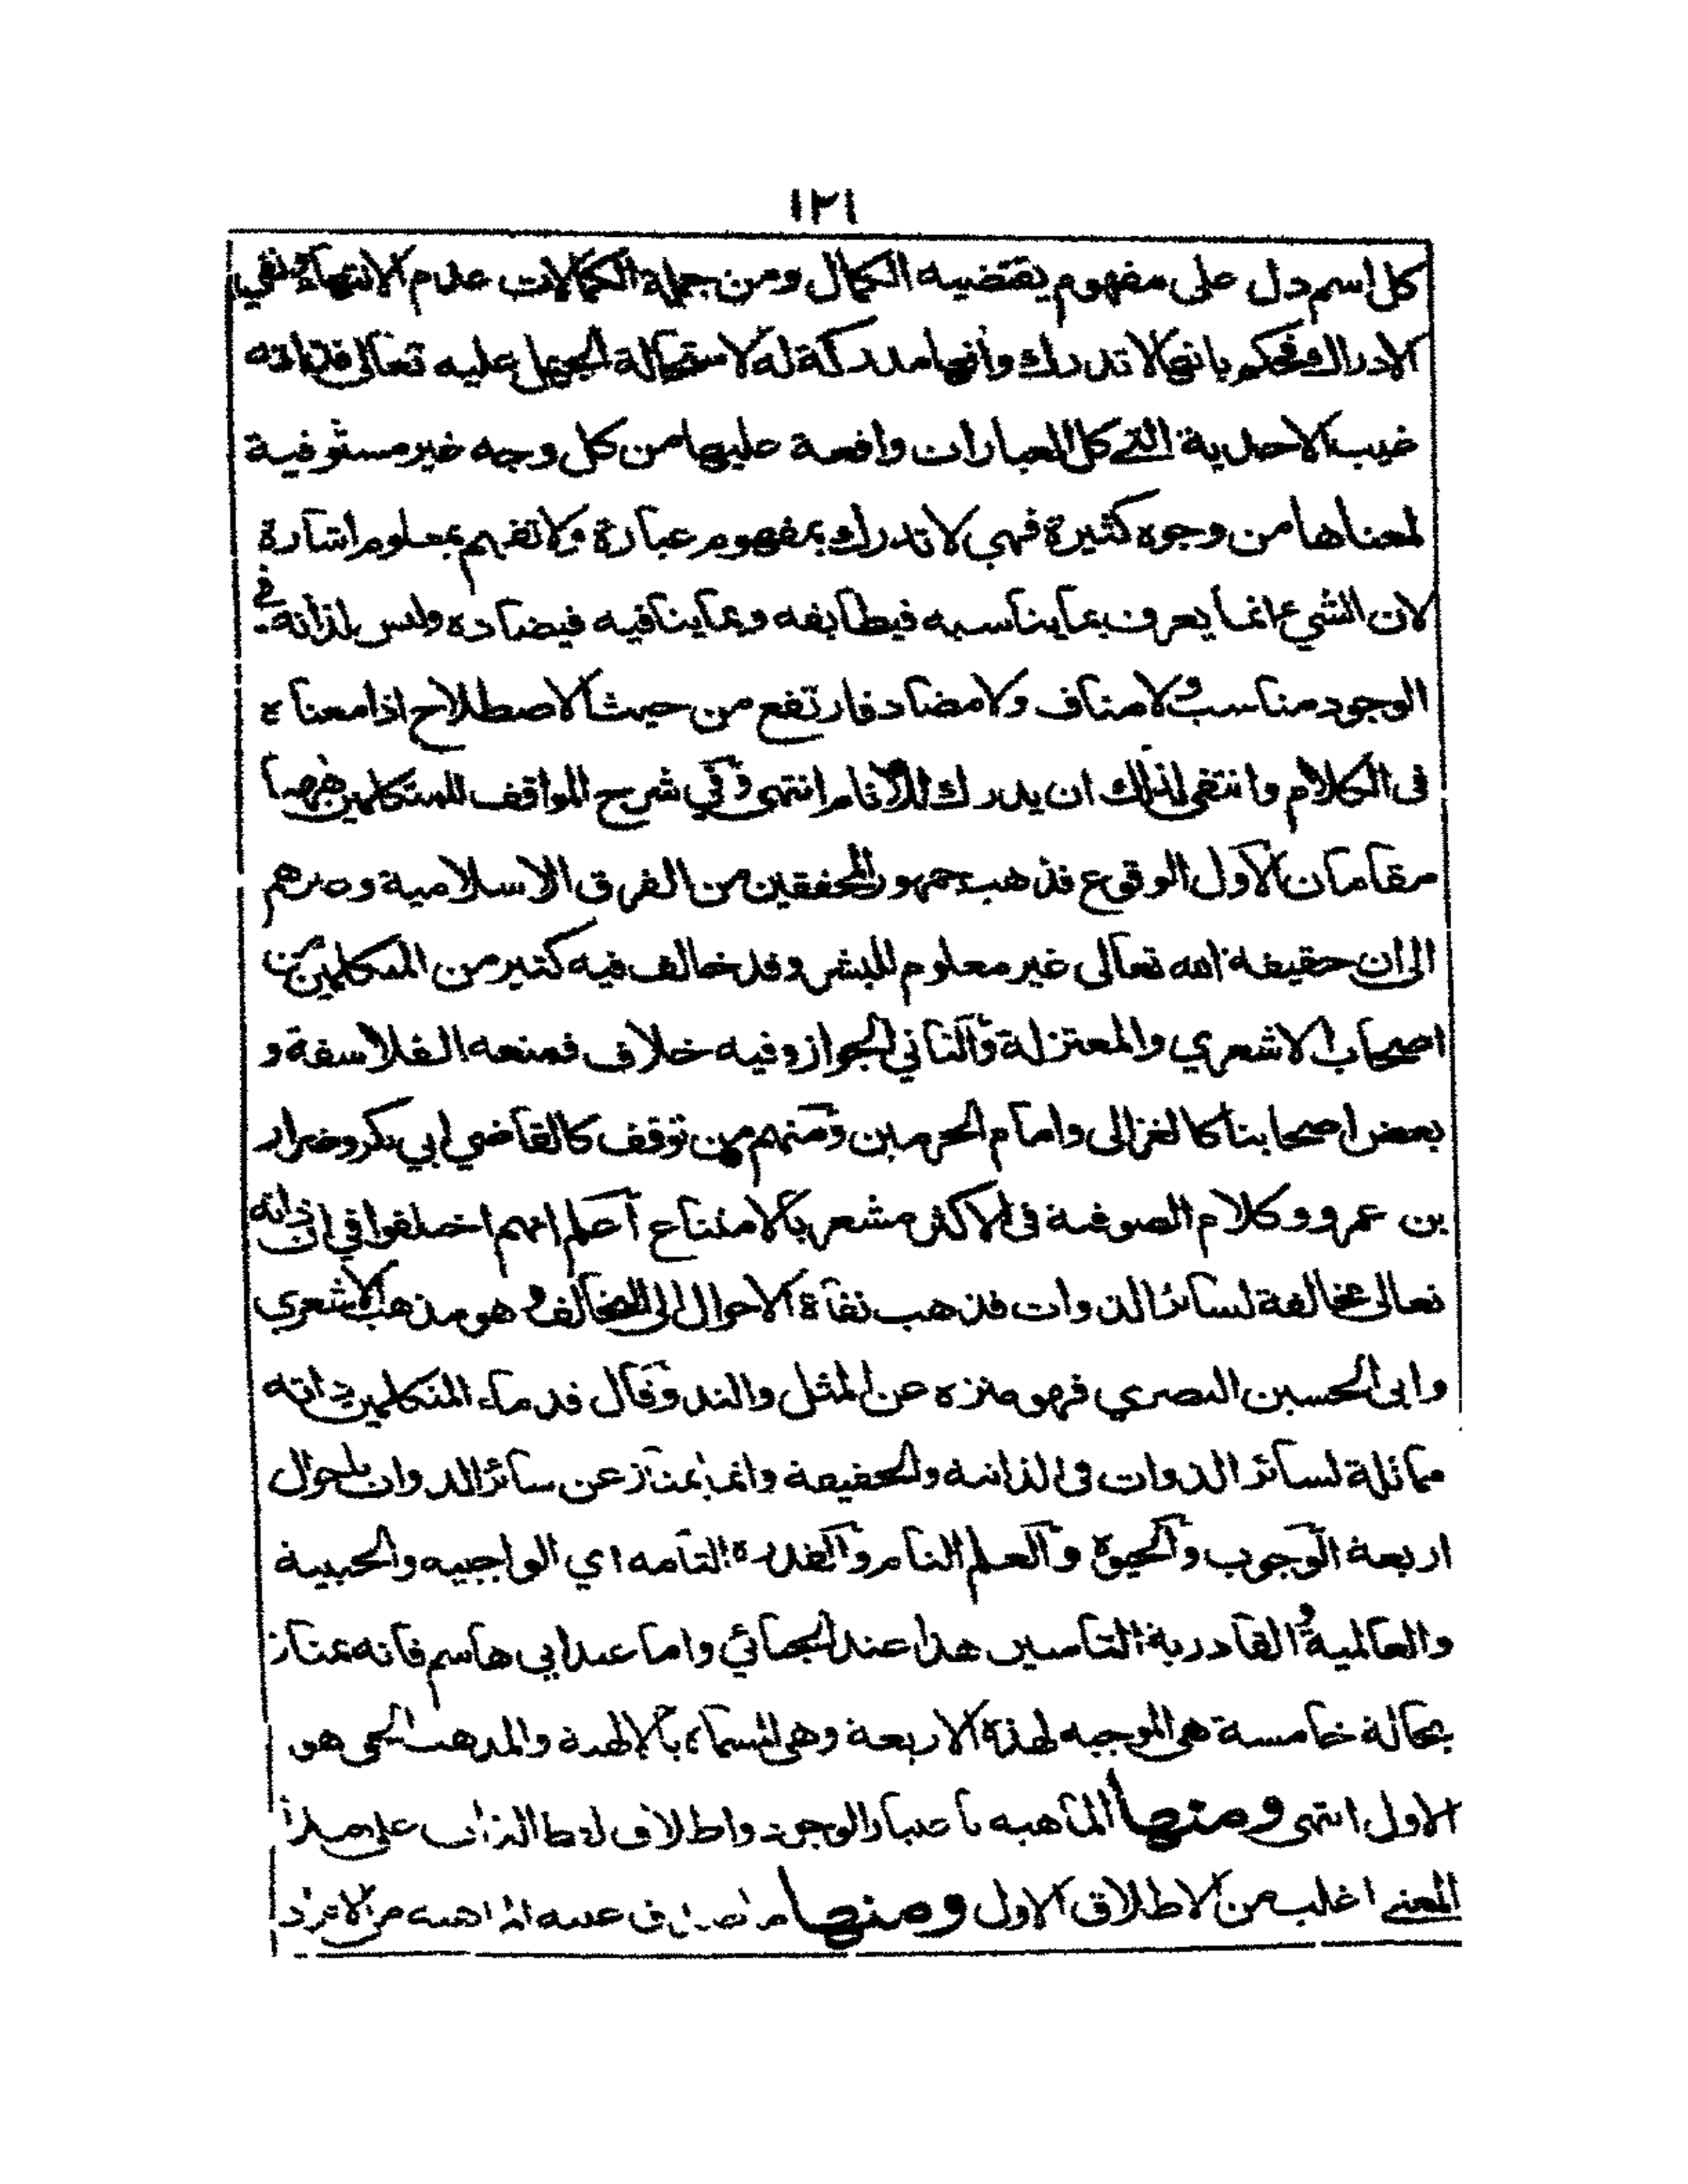 ١٢١
كل اسم دل على مفهوم يقتضيه الكمال ومن جملة الكمالات عدم الانتهاء ونفي
الادراك فحكم بانها لا تدرك وأنها مدركة له لاستحالة الجهل عليه تعالى فذاته
غيب الاحدية التي كل العبارات واقعة عليها من كل وجه غير مستوفية
لمعناها من وجوه كثيرة فهي لا تدرك بمفهوم عبارة ولا تفهم بمعلوم اشارة
لان الشيء انما يعرف بما يناسبه فيطابقه وبما ينافيه فيضاده وليس لذاته في
الوجود مناسب ولا مناف ولا مضاد فارتفع من حيث الاصطلاح اذا معناه
فى الكلام وانتفى لذلك ان يدرك للانام انتهى وفي شرح المواقف للمتكلمين ههنا
مقامان الاول الوقوع فذهب جمهور المحققين من الفرق الاسلامية وغيرهم
الى ان حقيقة الله تعالى غير معلوم للبشر وقد خالف فيه كثير من المتكلمين من
اصحاب الاشعري والمعتزلة والثاني الجواز وفيه خلاف فمنعه الفلاسفة و
بعض اصحابنا كالغزالى وامام الحرمين ومنهم من توقف كالقاضي ابي بكر وضرار
بن عمرو وكلام الصوفية فى الاكثر مشعر بالامتناع اعلم انهم اختلفوا في ان ذاته
تعالى مخالفة لسائر الذوات فذهب نفاة الاحوال الى التخالف وهو مذهب الاشعري
وابى الحسين البصري فهو منزه عن المثل والند وقال قدماء المتكلمين ذاته
مماثلة لسائر الذوات فى الذاتية والحقيقة وانما يمتاز عن سائر الذوات باحوال
اربعة الوجوب والحيوة والعلم التام والقدرة التامه اي الواجبيه والحييية
والعالمية والقادرية التامتين هذا عند الجبائي واما عند ابي هاشم فانه يمتاز
بحالة خامسة هي الموجبه لهذه الاربعة وهى المسماة بالالهية والمذهب الحق هو
الاول انتهى ومنها الماهيه باعتبار الوجود واطلاق لفظ الذات على هذا
المعنى اغلب من الاطلاق الاول ومنها ما صدق عليه الماهية من الافراد